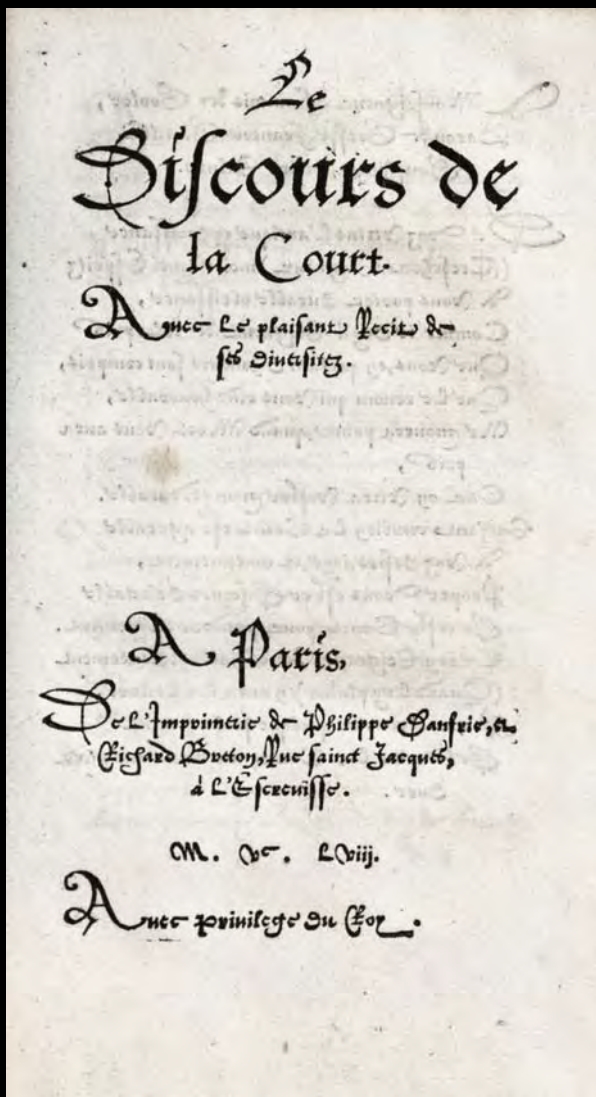 Le
Discours de
la Court.
Auec Le plaisant Recit de
ses diuersitez.
A Paris,
De L'Imprimerie de Philippe Danfrie, et
Richard Breton, Rue sainct Jacques,
à L'Escreuisse.
M. Vc. LViij.
Auec priuilege du Roy.